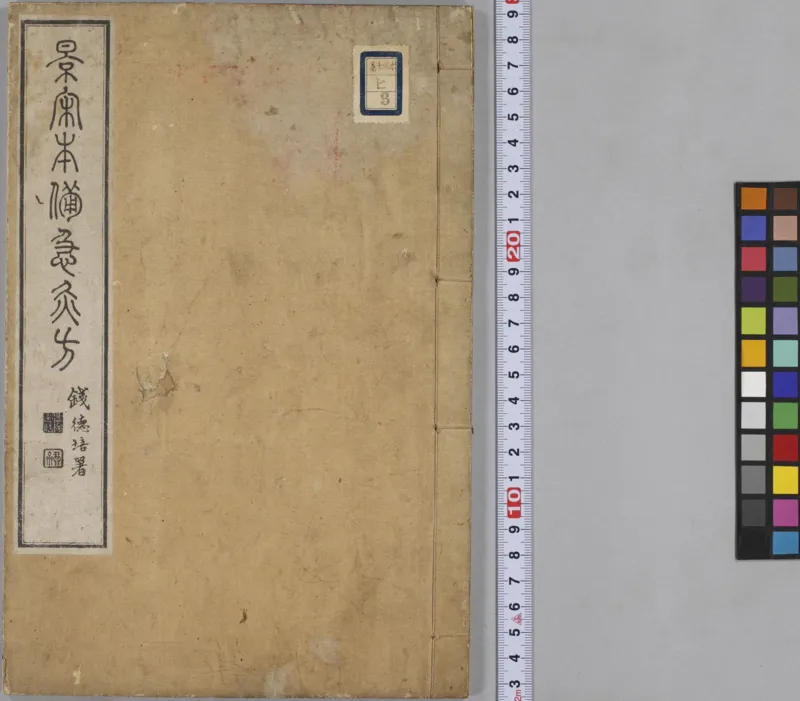 景宋本備急灸方
錢德培署
ヒ
3
9
8
7
6
5
4
3
2
1
20
9
8
7
6
5
4
3
2
1
10
9
8
7
6
5
4
3
2m